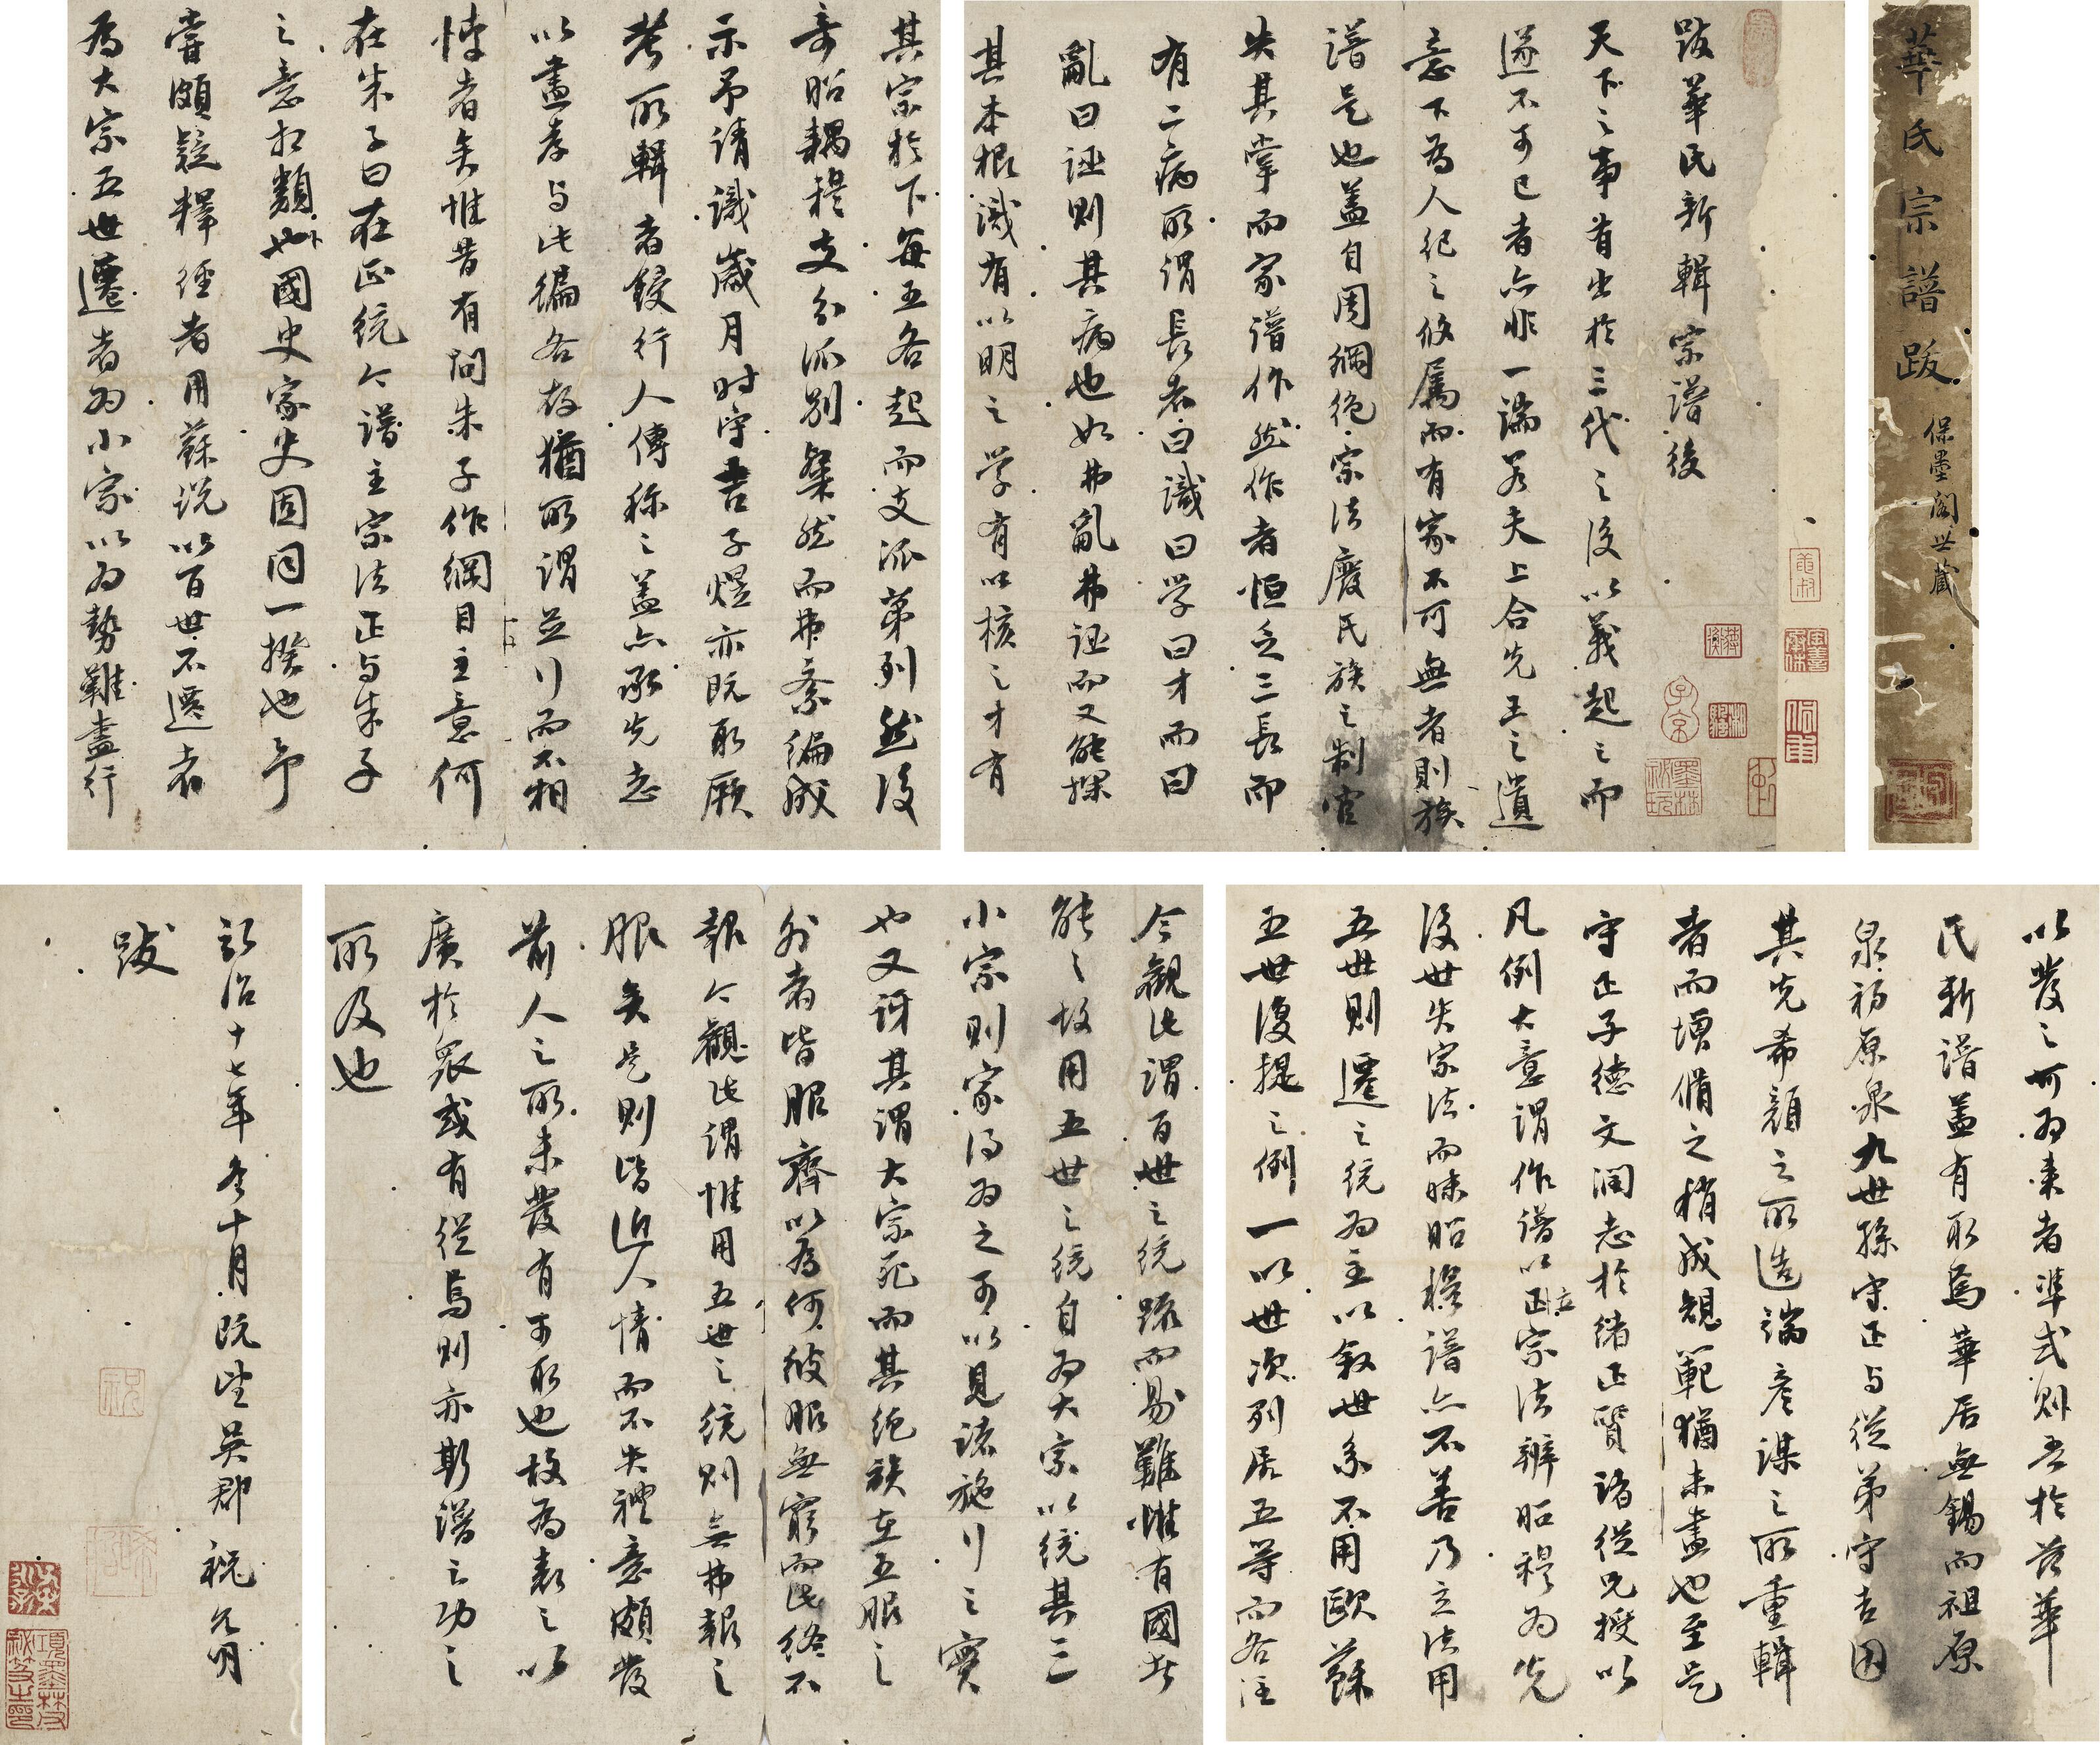 華氏宗譜跋
保墨閣世藏
跋華氏新輯宗譜後
天下之事有出於三代之後以義起之而
遂不可已者亦非一端若夫上合先王之遺
意下為人紀之攸屬而有家不可無者則族
譜是也蓋自周綱絶宗法廢氏族之制官
失其掌而家譜作然作者恒乏三長而
有二病所謂長者曰識曰学曰才而曰
亂曰誣則其病也如弗亂弗誣而又能探
其本根識有以明之学有以核之才有
以發之可為来者準式則吾於茲華
氏新譜蓋有取焉華居無錫而祖原
泉初原泉九世孫守正与從弟守吉因
其先希顏之所造端彦謀之所重輯
者而增脩之稍成規範猶未盡也至是
守正子德文潤志於緒正質諸從兄授以
凡例大意謂作譜以正宗法辨昭穆為先
後世失宗法而昧昭穆譜亦不善乃立法用
五世則遷之統為主以叙世系不用歐蘇
五世復提之例一以世次列居五等而各注
其宗於下每五各起而支派第列然後
奇昭耦穆支分派別粲然而弗紊編成
示予請識歲月时守吉子煜亦既取厥
考所輯者鋟行人傳称之蓋亦承先志
以盡孝与此編各存猶所謂並行而不相
悖者矣惟昔有問朱子作綱目主意何
在朱子曰在正統今譜主宗法正与朱子
之意相類也國史家史固同一揆也予
嘗頗疑釋經者用蘇説以百世不遷者
為大宗五世遷者為小宗以為勢難盡行
今觀此謂百世之統疏而易難惟有國者
能之故用五世之統自為大宗以統其三
小宗則家得為之可以見諸施行之實
也又訝其謂大宗死而其絶族在五服之
外者皆服齊以為何彼服無窮而此終不
報今觀此謂惟用五世之統則無弗報之
服矣是則皆近人情而不失禮意頗發
前人之所未發有可取也故為表之以
廣於衆或有從焉則亦斯譜之功之
所及也
弘治十七年冬十月既望吳郡祝允明
跋